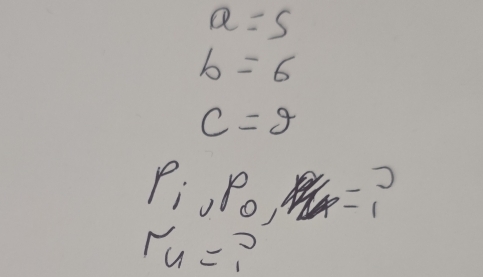 a = 5
b = 6
c = 9
Pi, Po, = ?
ru = ?